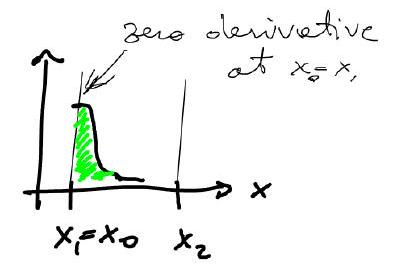 zero derivative
at x₀ = x₁
x
x₁ = x₀
x₂